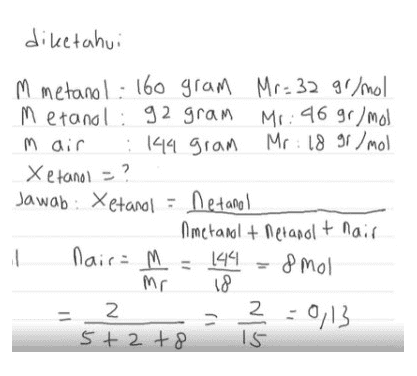 diketahui
M metanol : 160 gram Mr = 32 gr/mol
M etanol : 92 gram Mr : 46 gr/mol
m air : 144 gram Mr : 18 gr/mol
X etanol = ?
Jawab : X etanol = n etanol / n metanol + n etanol + n air
n air = M / Mr = 144 / 18 = 8 mol
= 2 / 5 + 2 + 8 = 2 / 15 = 0,13